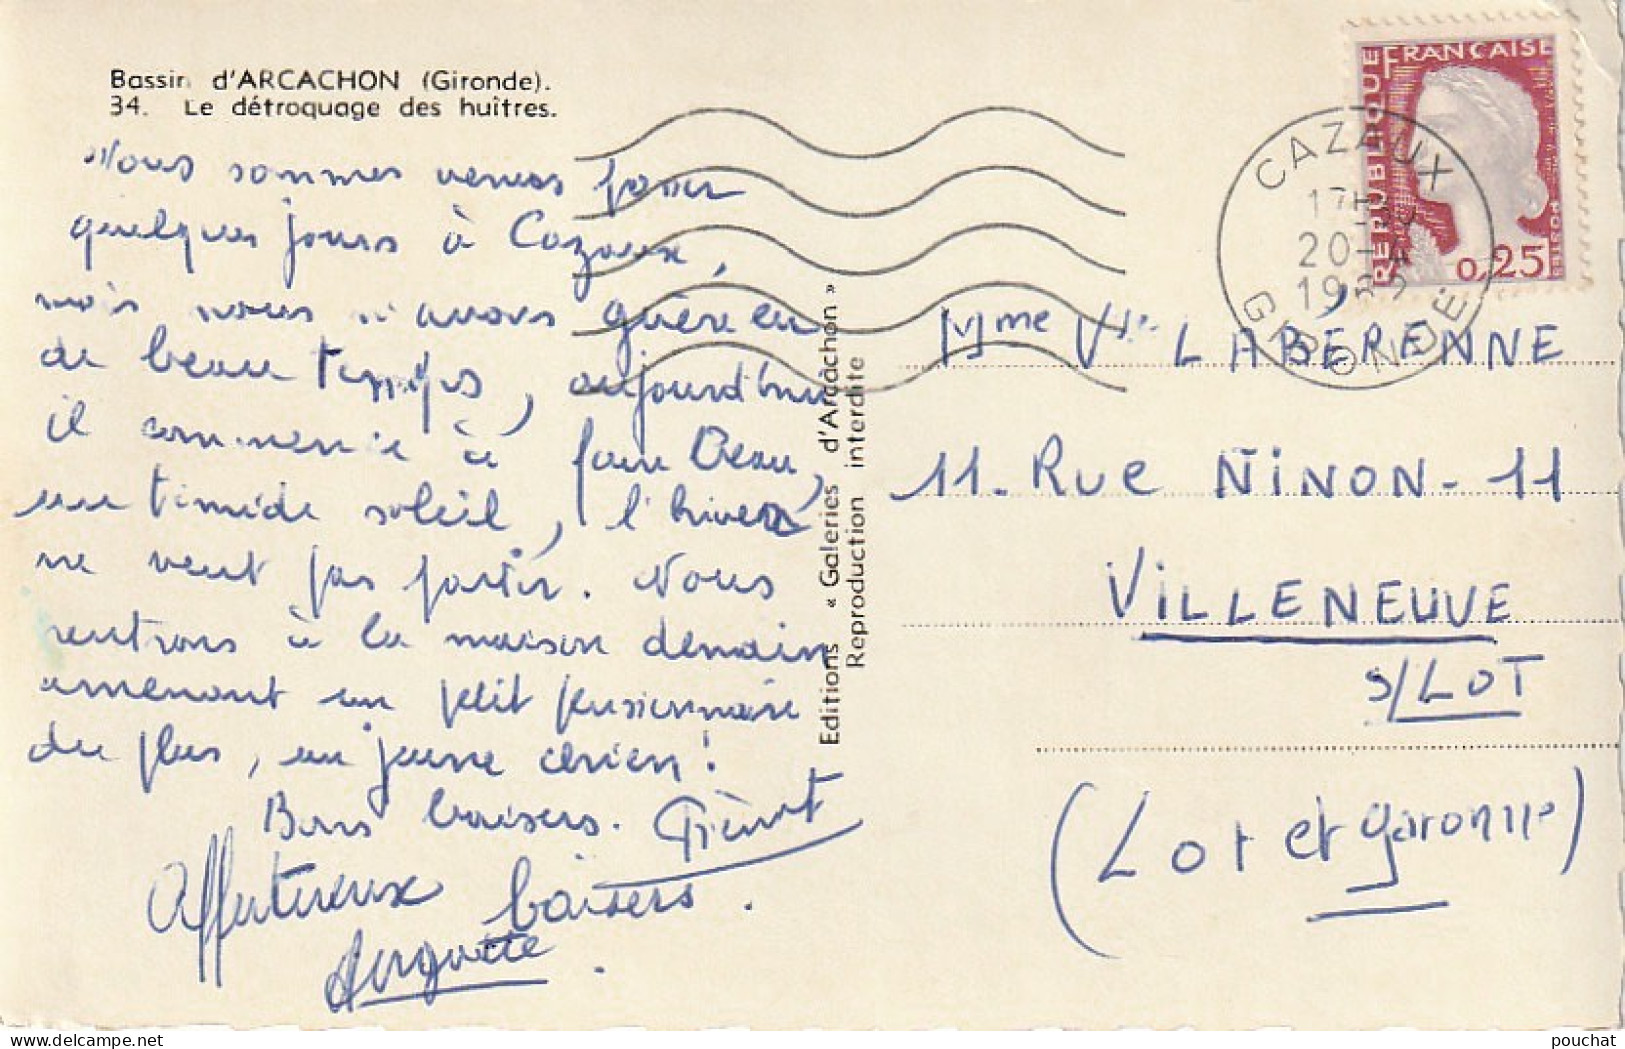 Bassin d'ARCACHON (Gironde).
34. Le détroquage des huîtres.
Nous sommes venus passer
quelques jours à Cazaux,
mais nous n'avons guère eu
de beau temps, aujourd'hui
il commence à faire beau,
un timide soleil, l'hiver
ne veut pas partir. Nous
rentrons à la maison demain
amenant un petit pensionnaire
de plus, un jeune
Bons baisers.
Affectueux baisers.
Editions « Galeries d'Arcachon »
Reproduction interdite
REPUBLIQUE FRANÇAISE
POSTES
0,25
CAZAUX
17H
20-4
196
GIRONDE
Mme Vve LABERENNE
11. Rue NINON - 11
VILLENEUVE
S/LOT
(Lot et garonne)
pouchat